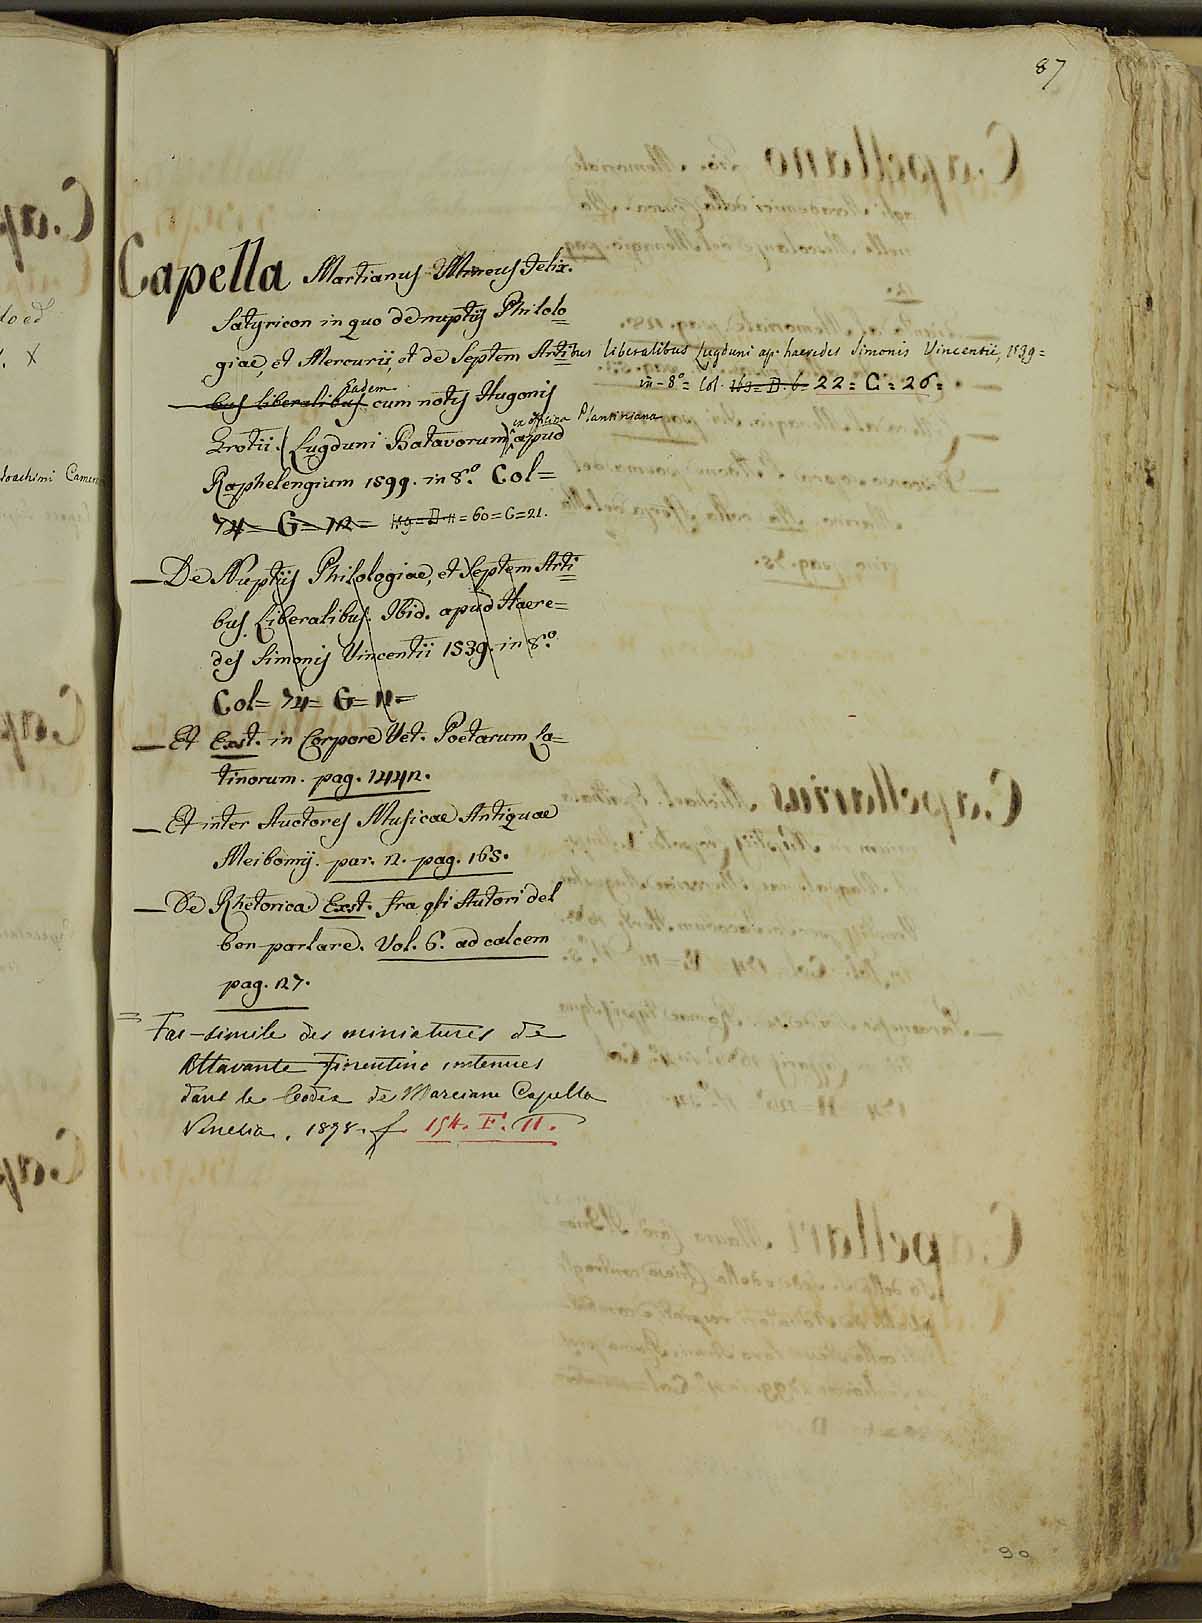 87
Capella Martianus Mineus Felix.
Satyricon in quo de nuptijs Philolo=
giae, et Mercurii, et de Septem Artibus liberalibus Lugduni ap. haeredes Simonis Vincentii, 1539=
in-8°= Col. 169= D. 6= 22= C= 26=
bus liberalibus Eadem cum notis Hugonis
Grotii. (Lugduni Batavorum) ex officina Plantiniana apud
Raphelengium 1599. in 8.° Col=
74= G= 12= = 60= C= 21.
— De Nuptiis Philologiae, et Septem Arti=
bus Liberalibus. Ibid. apud Haere=
des Simonis Vincentii 1539. in 8.°
Col= 74= G= 11=
— Et Exst. in Corpore Vet. Poetarum La=
tinorum. pag. 1442.
— Et inter Auctores Musicae Antiquae
Meibomij. par. 2. pag. 165.
— De Rhetorica Exst. fra gli Autori del
ben parlare. Vol. 6. ad calcem
pag. 127.
= Fac-simile des miniatures de
Attavante Fiorentino contenues
dans le Codex de Marciano Capella
Venezia. 1878. f. 154. F. 11.
90
Joachimi